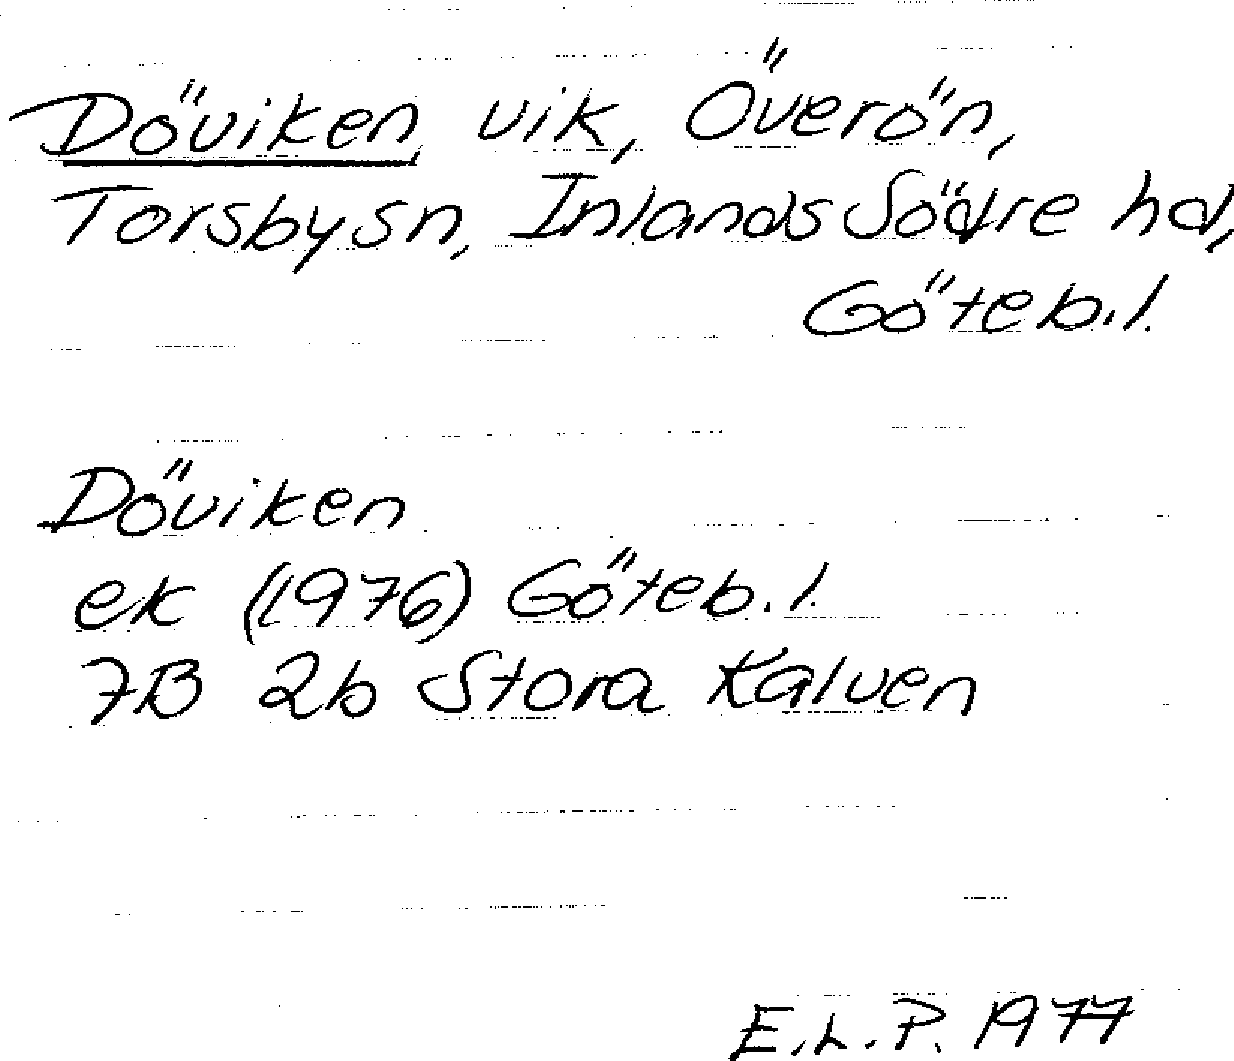 Döviken vik, Överön,
Torsby sn, Inlands Södre hd,
Göteb. l.
Döviken
ek (1976) Göteb. l.
7B 2b Stora Kalven
E.L.P. 1977